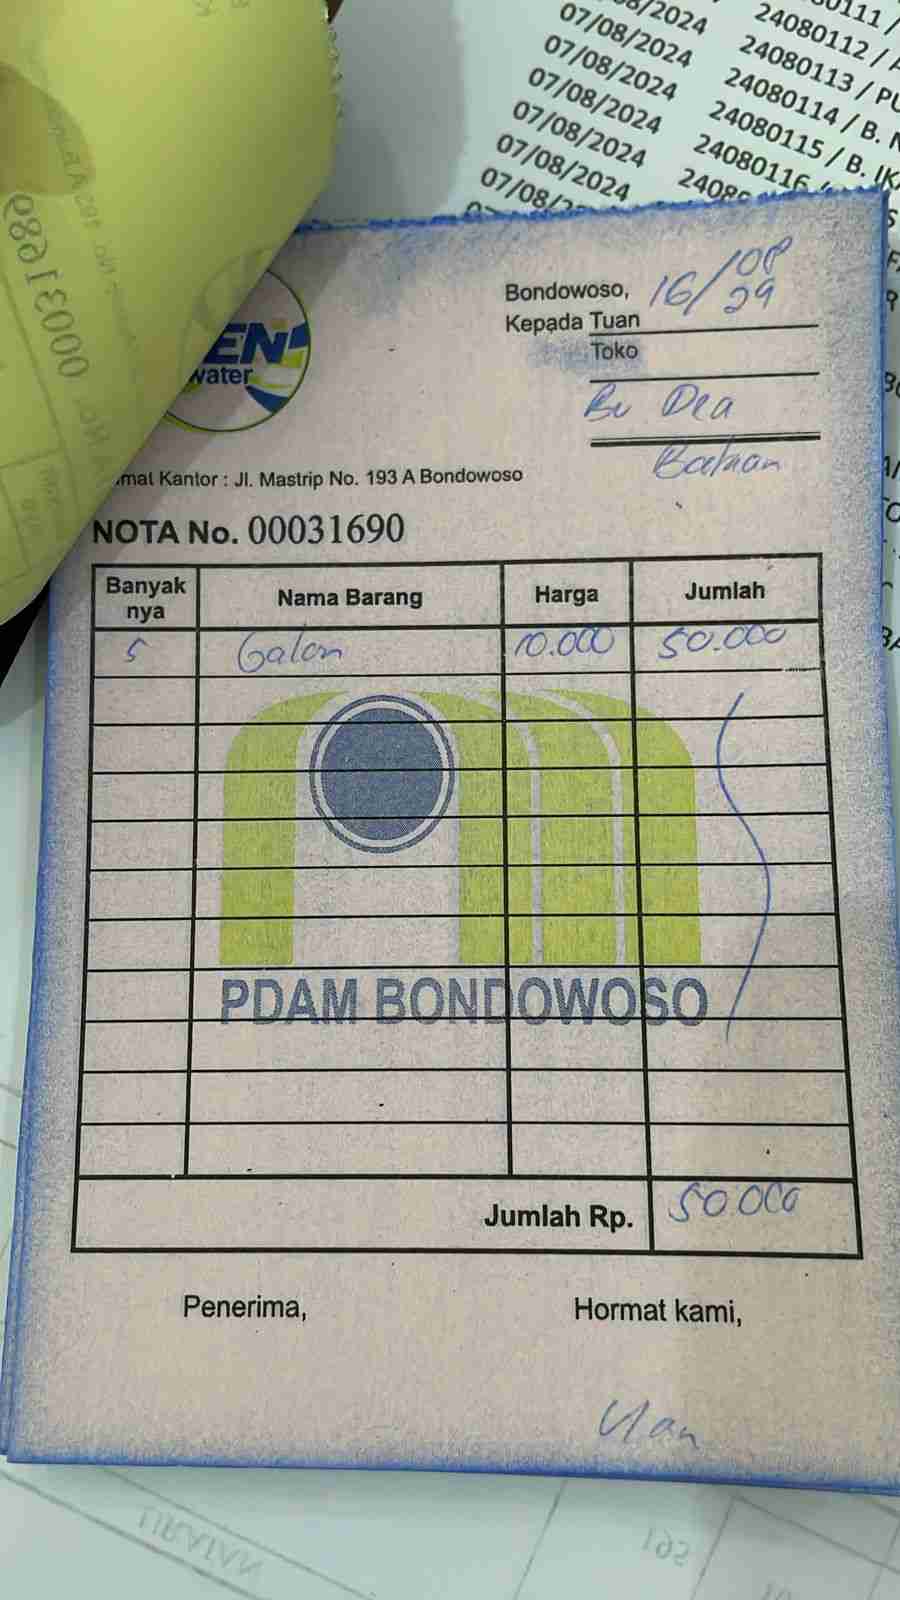 08/2024 80111 /
07/08/2024 24080112 / A
07/08/2024 24080113 / PU
07/08/2024 24080114 / B. N
07/08/2024 24080115 / B. IK
07/08/2024 24080116
07/08/2024
07/08/2
00031689
EN
water
Bondowoso, 16/08
24
Kepada Tuan
Toko
Bu Dea
Bataan
mat Kantor : Jl. Mastrip No. 193 A Bondowoso
NOTA No. 00031690
Banyak nya Nama Barang Harga Jumlah
5 Galon 10.000 50.000
PDAM BONDOWOSO
Jumlah Rp. 50.000
Penerima, Hormat kami,
Ulan
URAIAN